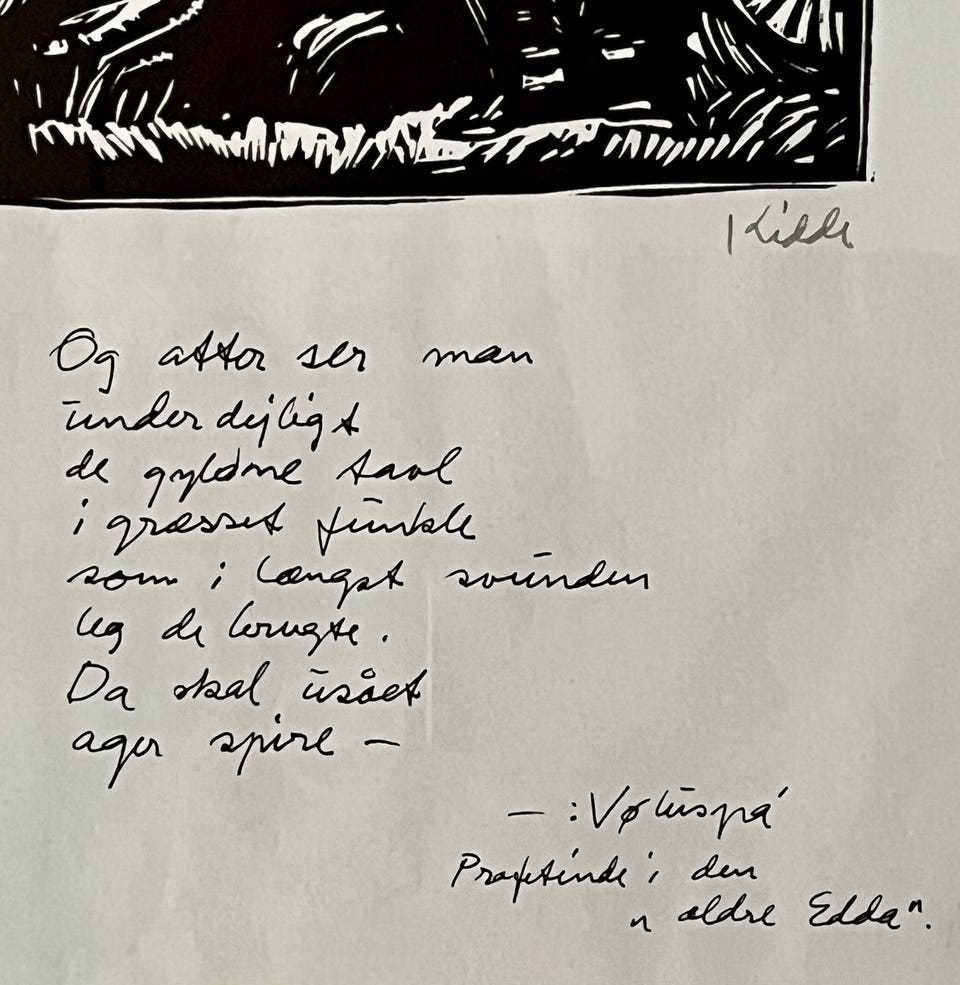 Kidde
Og atter ser man
underdejligt
de gyldne tavl
i græsset funkle
som i længst svunden
leg de brugte.
Da skal usået
ager spire –
– : Vøluspá
Profetinde i den
„ ældre Edda".